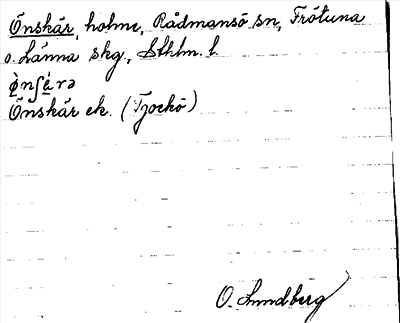 Önskär, holme, Rådmansö sn, Frötuna
o. Länna skg., Sthlm. l.
ö̀nʃä́rə
Önskär ek. (Tjockö)
O. Lundberg